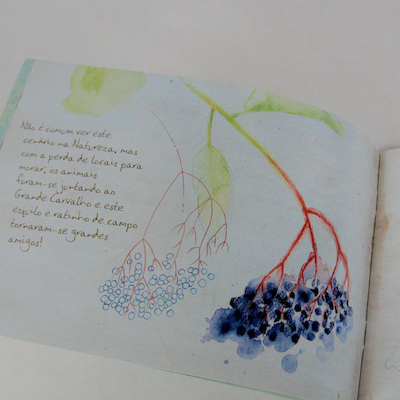 Não é comum ver este
cenário na Natureza, mas
com a perda de locais para
morar, os animais
foram-se juntando ao
Grande Carvalho e este
esquilo e ratinho de campo
tornaram-se grandes
amigos!